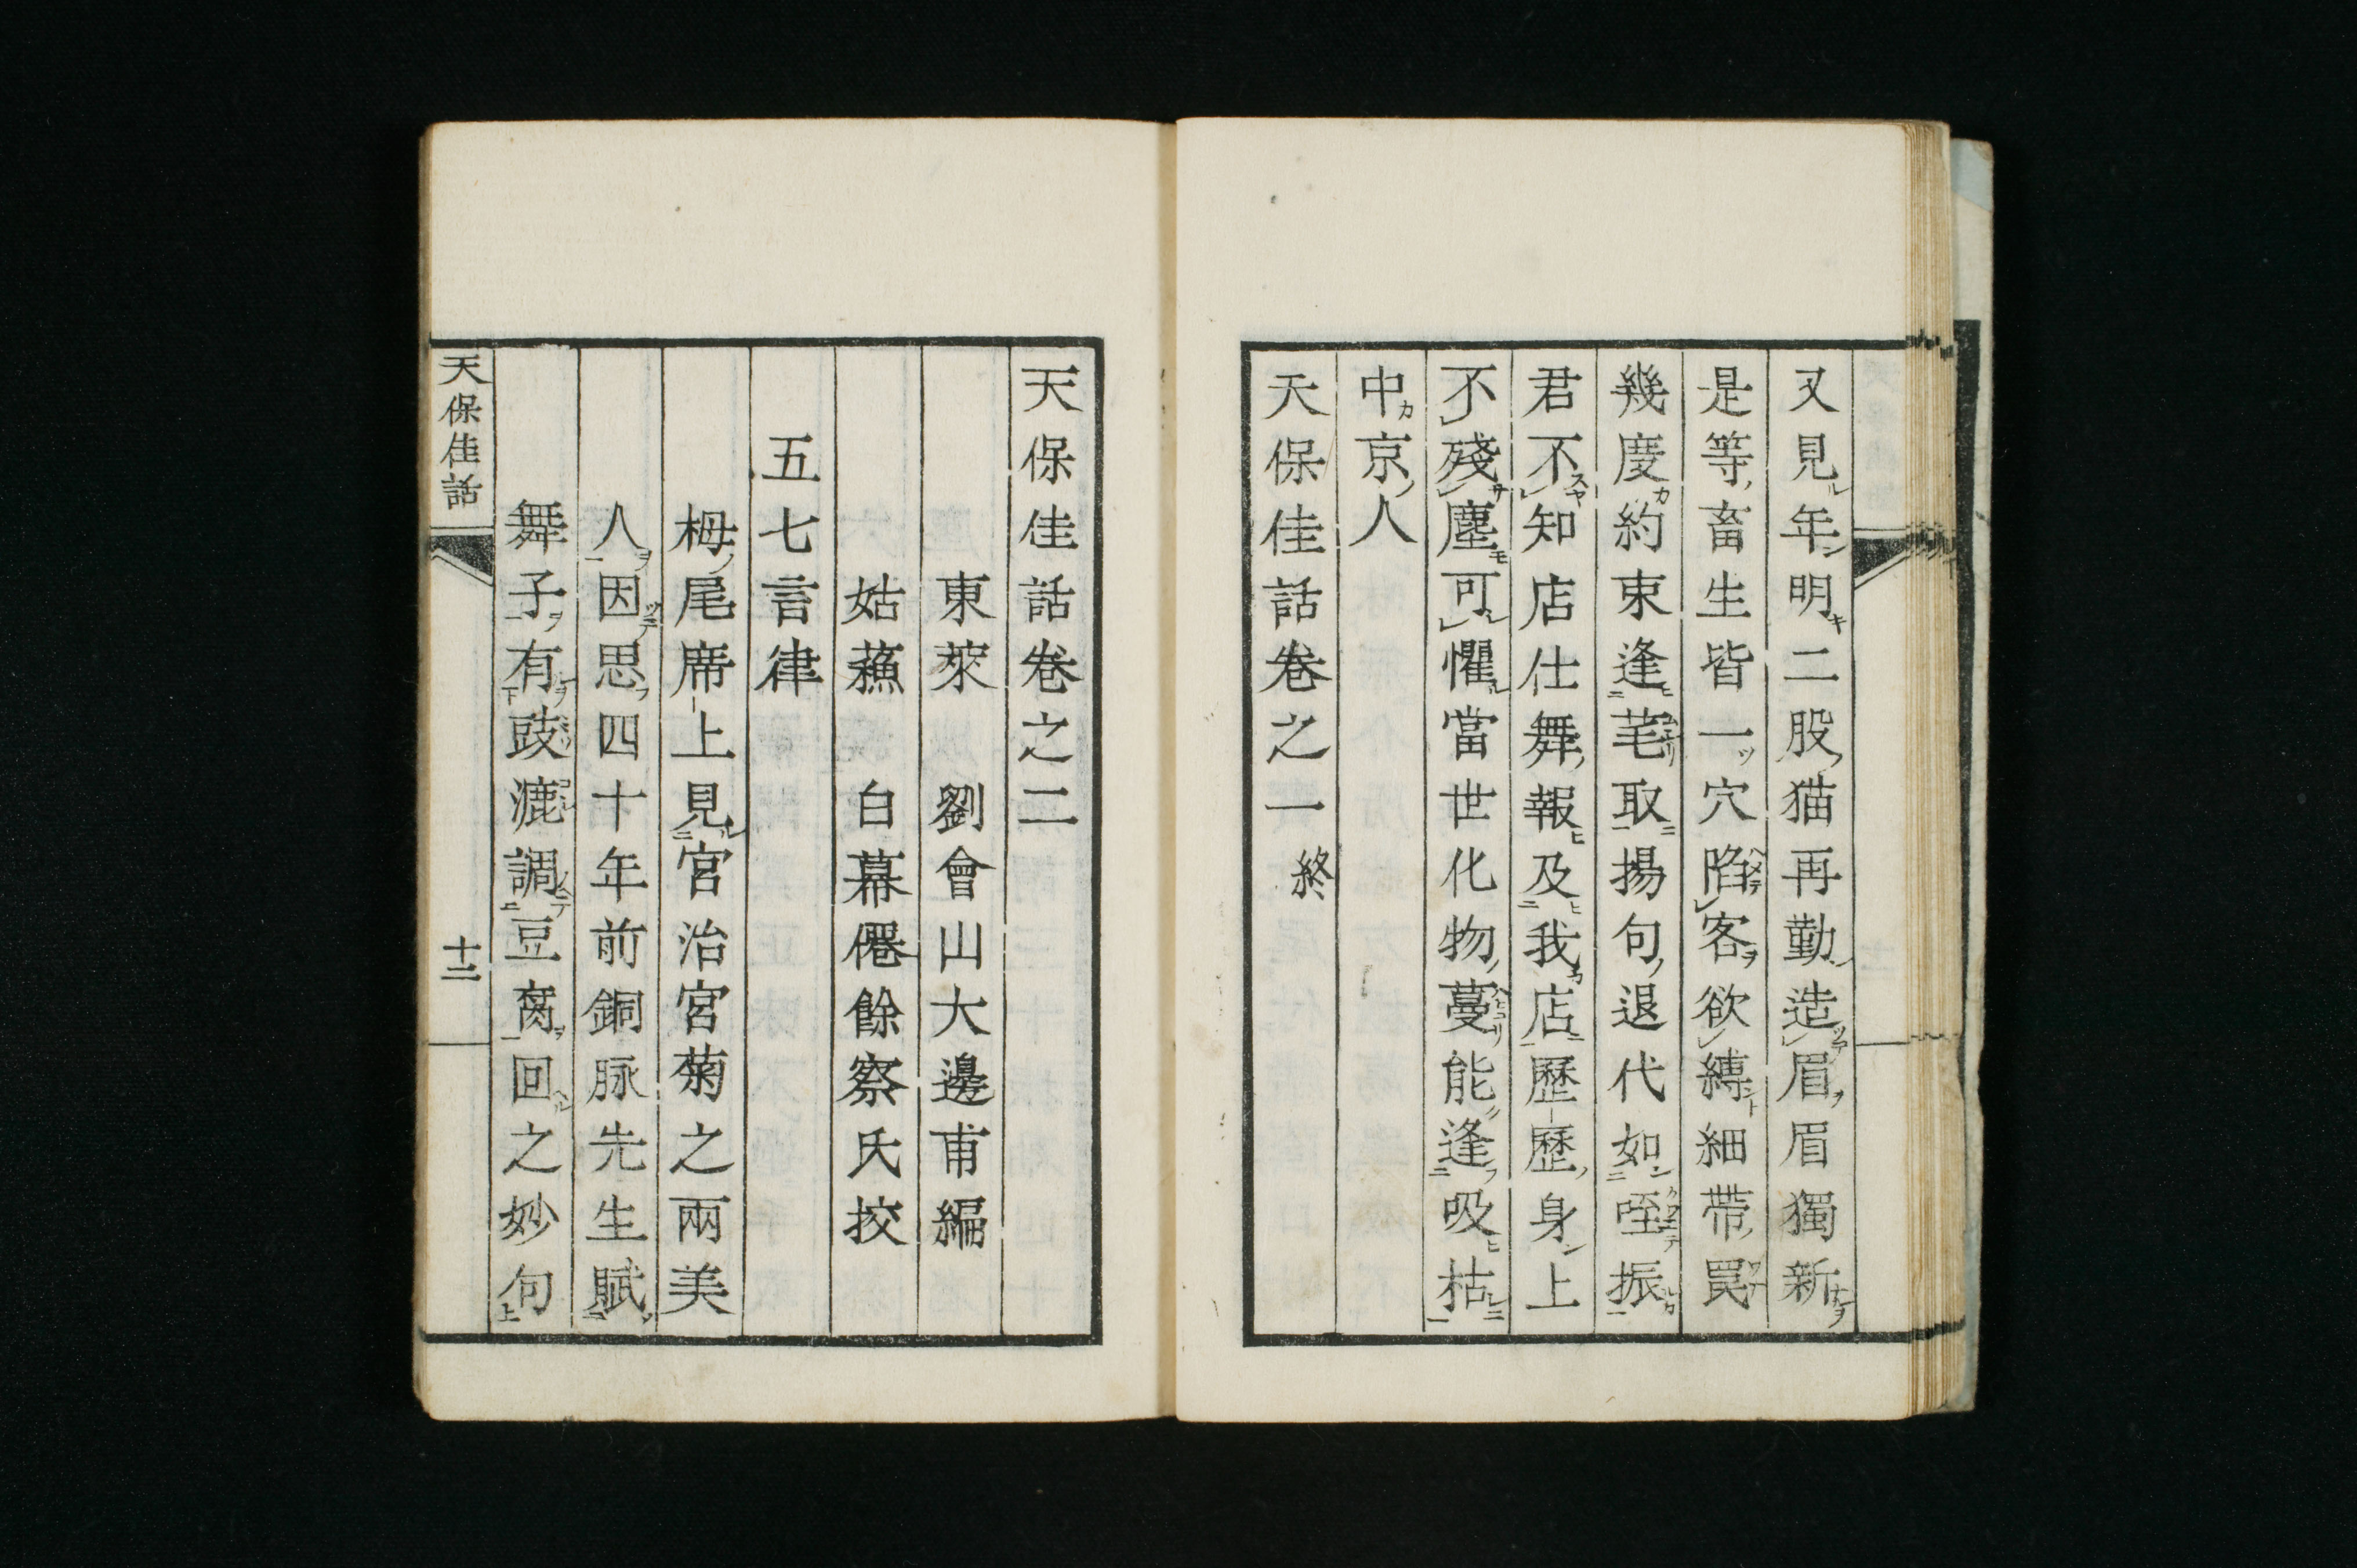 又見年明二股猫再勤造眉眉獨新
是等畜生皆一穴陷客欲縳細帶罠
幾度約束逢芼取揚句退代如咥振
君不知店仕舞報及我店歷歷身上
不殘塵可懼當世化物蔓能逢吸枯
中京人
天保佳話卷之一終
天保佳話卷之二
東萊 劉會山大邊甫編
姑蘓 白幕僊餘察氏挍
五七言律
栂尾席上見宮治宮菊之兩美
人因思四十年前銅脉先生賦
舞子有豉漉調豆腐回之妙句
天保佳話
十二